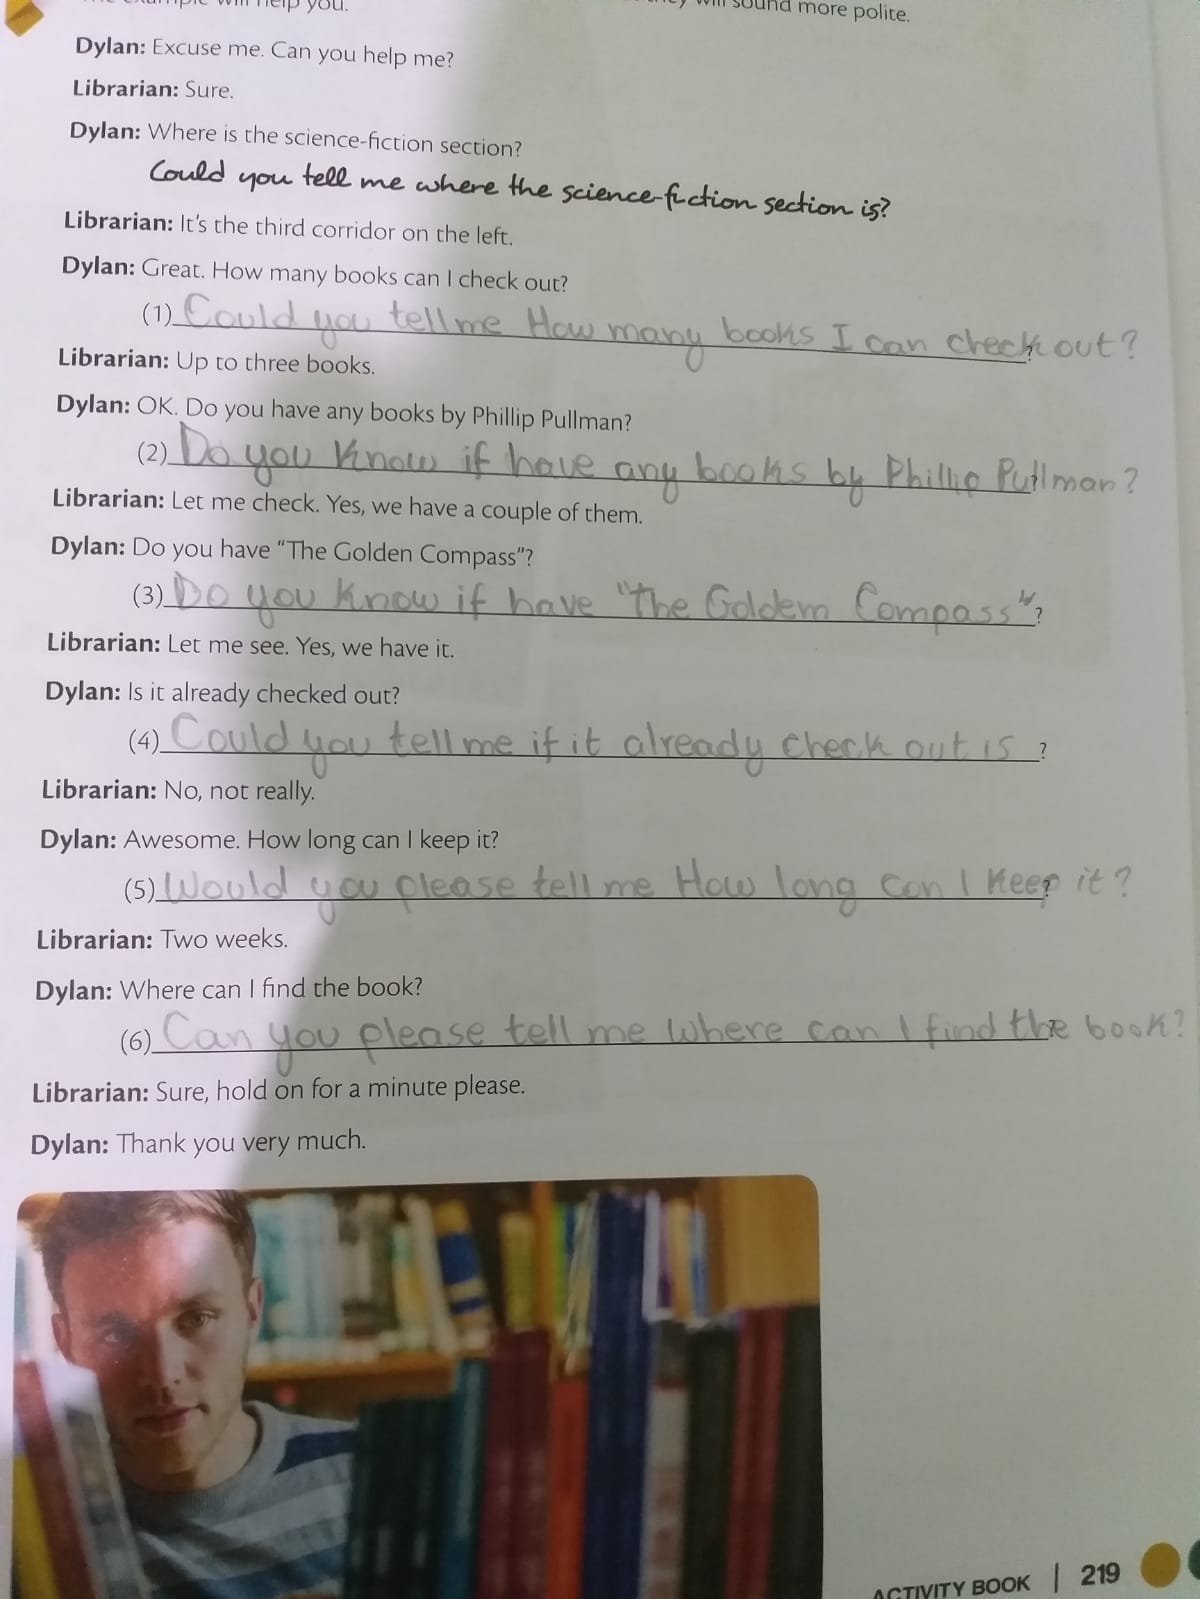 help you.
will sound more polite.
Dylan: Excuse me. Can you help me?
Librarian: Sure.
Dylan: Where is the science-fiction section?
Could you tell me where the science-fiction section is?
Librarian: It's the third corridor on the left.
Dylan: Great. How many books can I check out?
(1) Could you tell me How many books I can check out?
Librarian: Up to three books.
Dylan: OK. Do you have any books by Phillip Pullman?
(2) Do you Know if have any books by Phillip Pullman?
Librarian: Let me check. Yes, we have a couple of them.
Dylan: Do you have “The Golden Compass”?
(3) Do you Know if have "the Goldem Compass"?
Librarian: Let me see. Yes, we have it.
Dylan: Is it already checked out?
(4) Could you tell me if it already check out is ?
Librarian: No, not really.
Dylan: Awesome. How long can I keep it?
(5) Would you please tell me How long can I Keep it?
Librarian: Two weeks.
Dylan: Where can I find the book?
(6) Can you please tell me where can I find the book?
Librarian: Sure, hold on for a minute please.
Dylan: Thank you very much.
ACTIVITY BOOK | 219